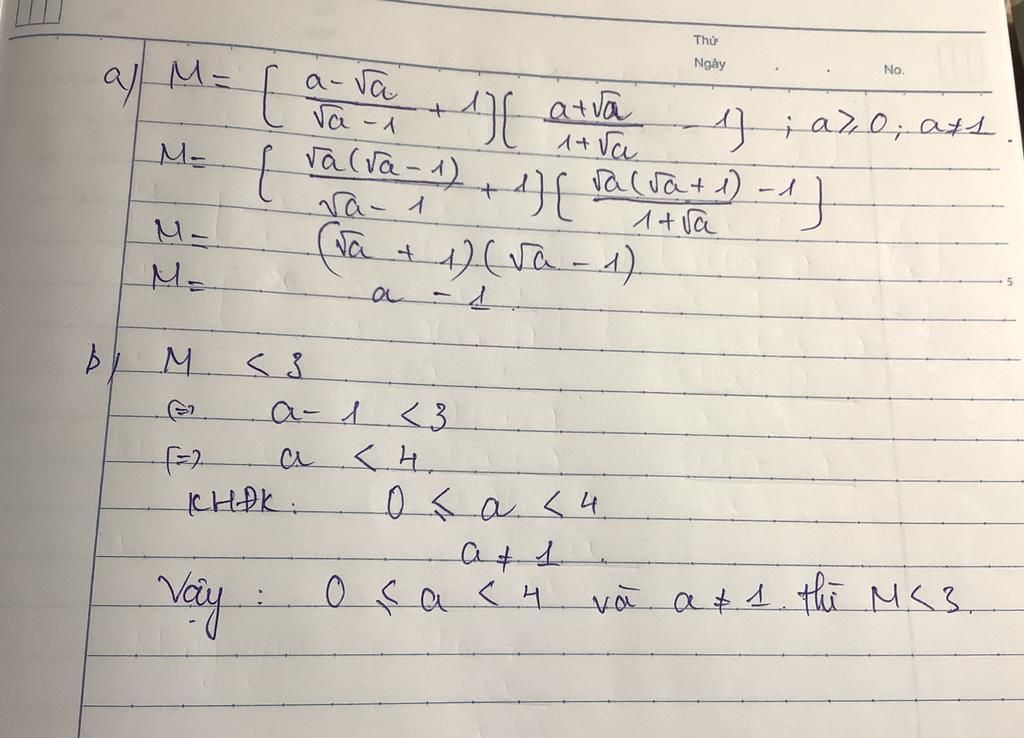 Thứ
Ngày . . No.
a) M = [ (a - √a)/(√a - 1) + 1 ] [ (a + √a)/(1 + √a) - 1 ] ; a ≥ 0 ; a ≠ 1 .
M = [ √a(√a - 1)/(√a - 1) + 1 ] [ (√a(√a + 1) - 1)/(1 + √a) ]
M = (√a + 1)(√a - 1)
M = a - 1
5
b) M < 3
(=) a - 1 < 3
(=) a < 4
KHĐK : 0 ≤ a < 4
a ≠ 1 .
Vậy : 0 ≤ a < 4 và a ≠ 1 thì M < 3.